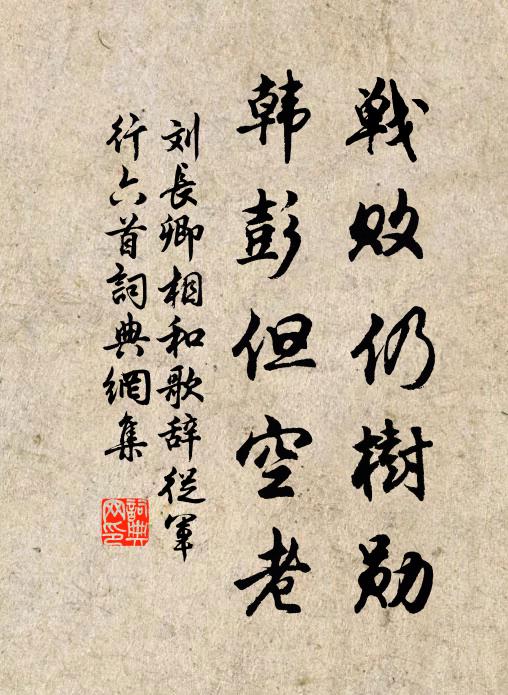 戦败仍樹勋
韩彭但空老
刘長卿相和歌辞從軍
行六首詞典網集
詞典
网印